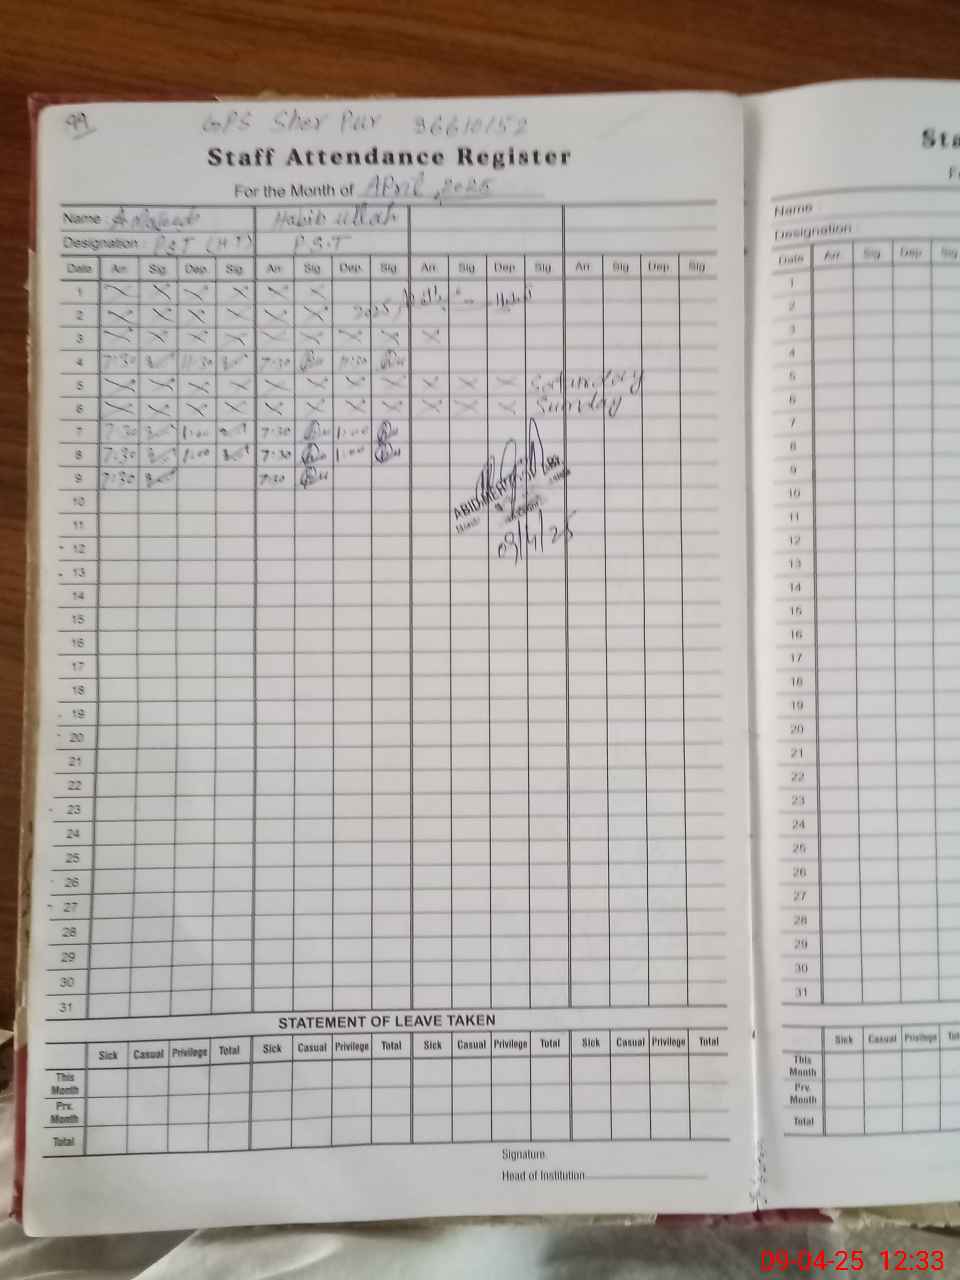 99
GPS Sher Pur 36610152
Staff Attendance Register
For the Month of April, 2025
Name : Habib ullah
Designation : PST (HT) P.S.T
Date Arr. Sig. Dep. Sig. Arr. Sig. Dep. Sig. Arr. Sig. Dep. Sig. Arr. Sig. Dep. Sig.
1
2 2025,
3
4 7:30 11:30 7:30 11:30
5 Saturday
6 Sunday
7 7:30 1:00 7:30 1:00
8 7:30 1:00 7:30 1:00
9 7:30 7:30
10
11
12
13
14
15
16
17
18
19
20
21
22
23
24
25
26
27
28
29
30
31
09/4/25
STATEMENT OF LEAVE TAKEN
Sick Casual Privilege Total Sick Casual Privilege Total Sick Casual Privilege Total Sick Casual Privilege Total
This Month
Prv. Month
Total
Signature.
Head of Institution
Sta
F
Name :
Designation :
Date Arr. Sig. Dep. Sig
1
2
3
4
5
6
7
8
9
10
11
12
13
14
15
16
17
18
19
20
21
22
23
24
25
26
27
28
29
30
31
Sick Casual Privilege Tot
This Month
Prv. Month
Total
09-04-25 12:33